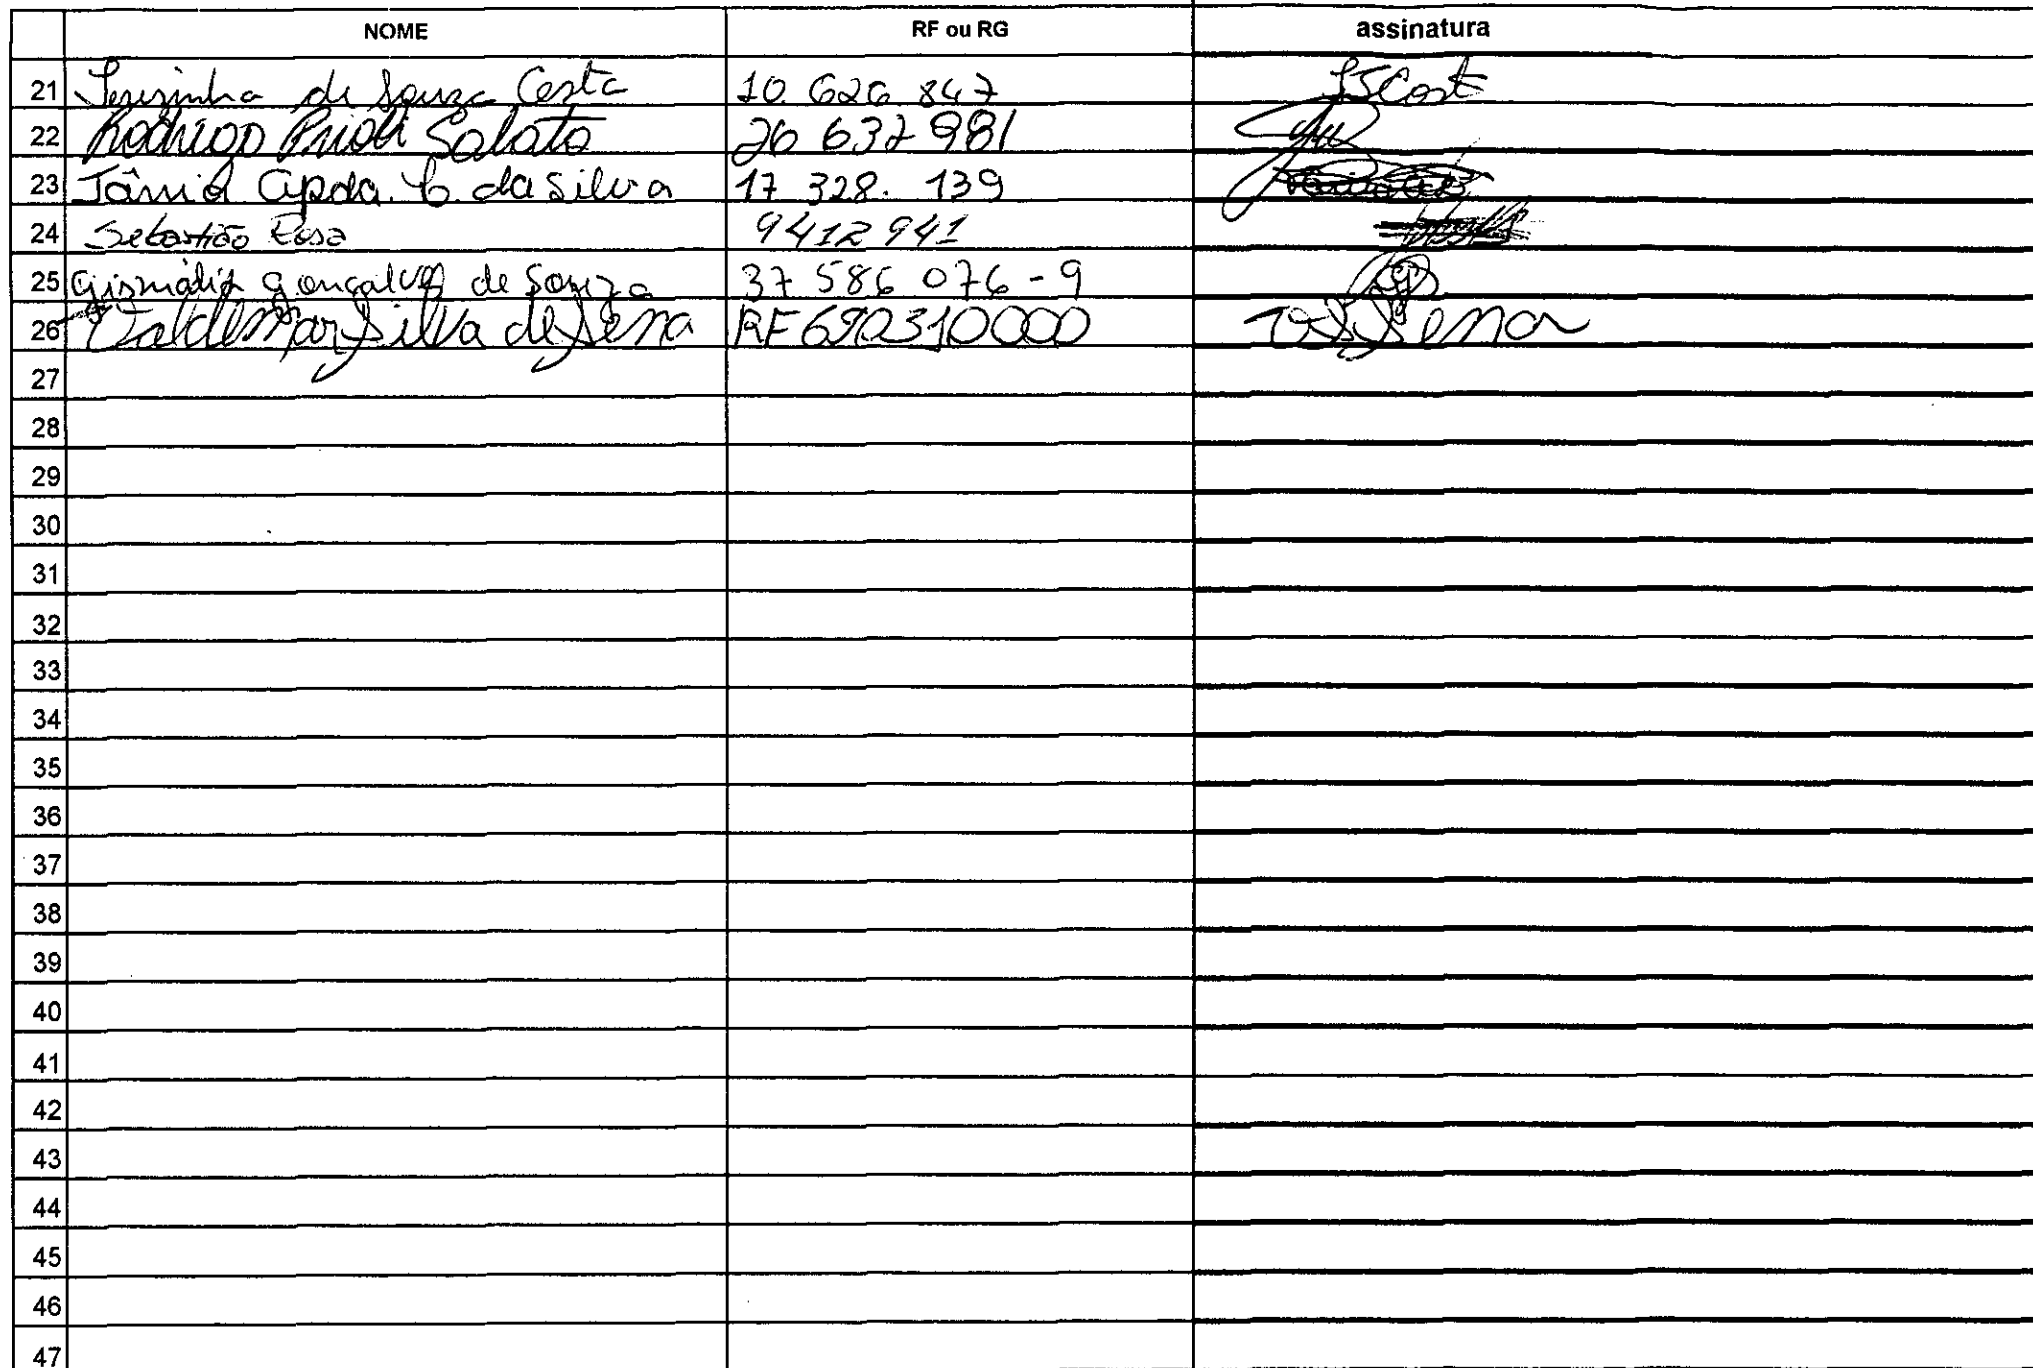 NOME RF ou RG assinatura
21 Terezinha de Souza Costa 10.626.847 TSCost
22 Rodrigo Prioli Salato 26 632 981
23 Tânia Apda. C. da Silva 17 328. 139
24 Sebastião Rosa 9412941
25 Gismália Gonçalves de Souza 37 586 076-9
26 Valdemar Silva de Sena RF 690310000 VSSena
27
28
29
30
31
32
33
34
35
36
37
38
39
40
41
42
43
44
45
46
47